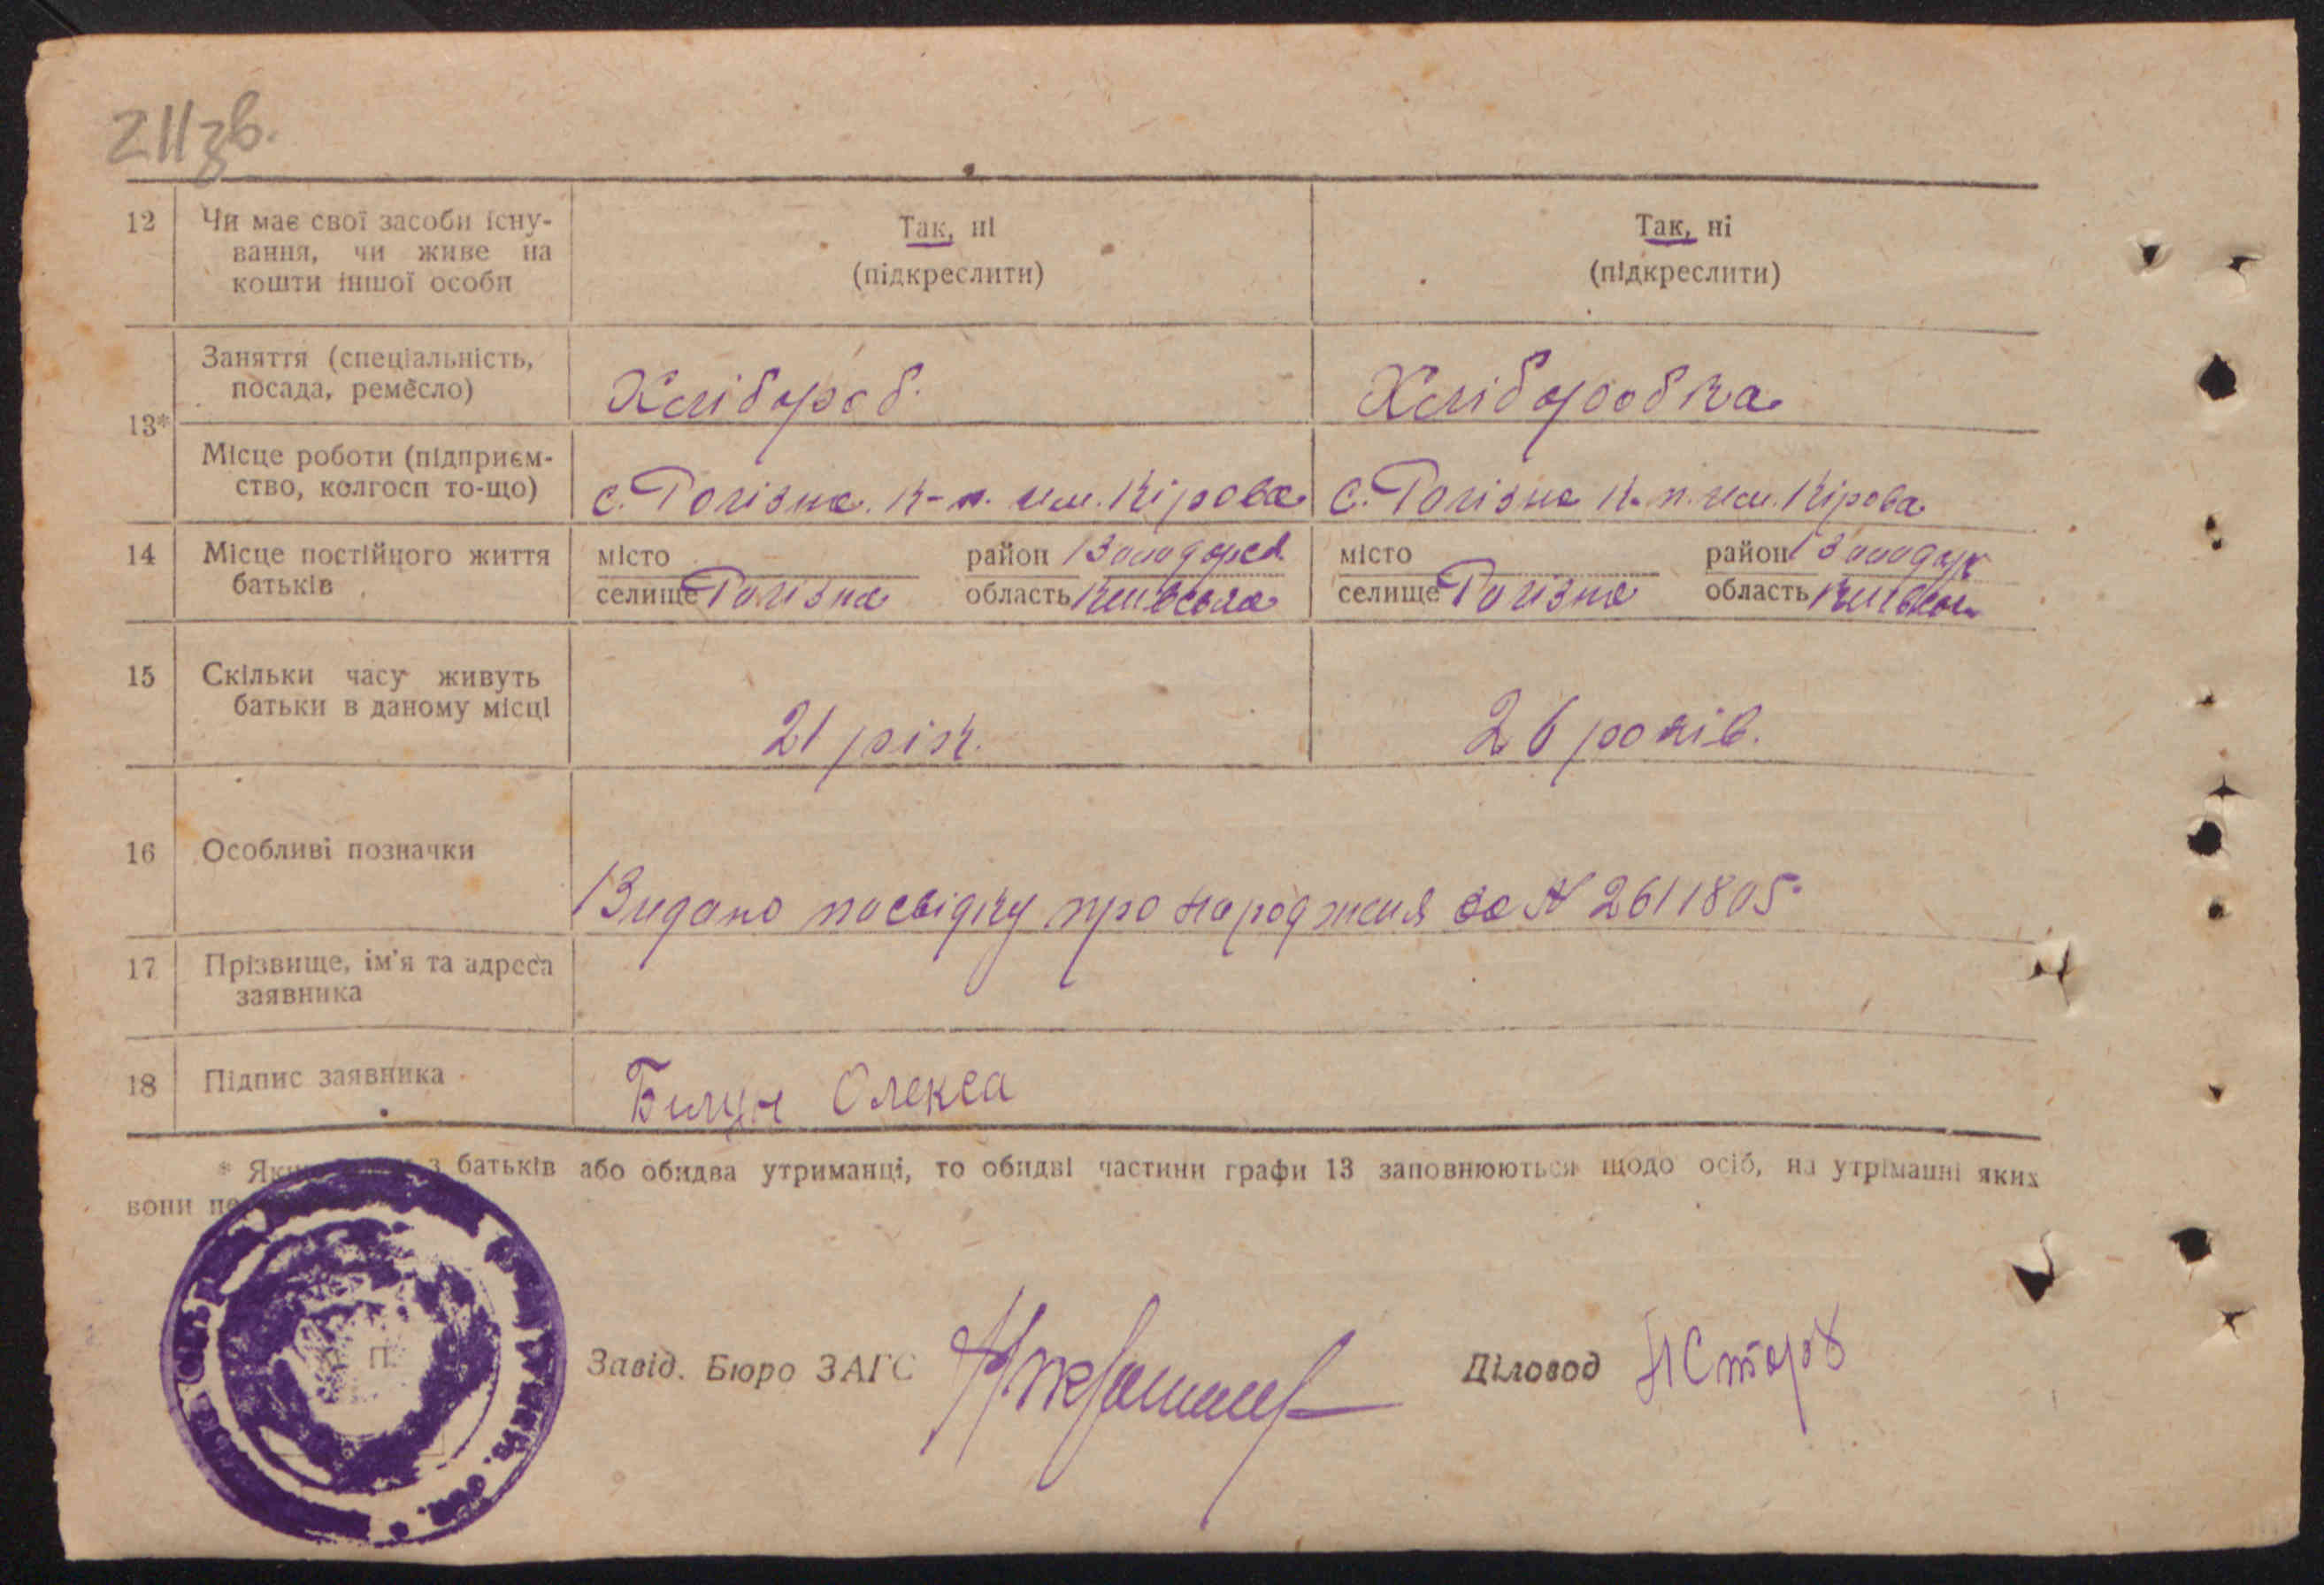 211зв.
12 Чи має свої засоби існу- Так, ні Так, ні
вання, чи живе на (підкреслити) (підкреслити)
кошти іншої особи
13* Заняття (спеціальність, Хлібороб. Хліборобка
посада, ремесло)
Місце роботи (підприєм- с. Гопі к-п. им. Кірова с. к-п. им. Кірова
ство, колгосп то-що)
14 Місце постійного життя місто район Володарсь. місто район Володар
батьків селище область Київська селище область Київськ
15 Скільки часу живуть 21 рік. 26 років.
батьки в даному місці
16 Особливі позначки
Видано посвідку про народженя за № 2611805
17 Прізвище, ім'я та адреса
заявника
18 Підпис заявника Билун Олекса
* з батьків або обидва утриманці, то обидві частини графи 13 заповнюються щодо осіб, на утріманні яких
вони
П.
Завід. Бюро ЗАГС Діловод